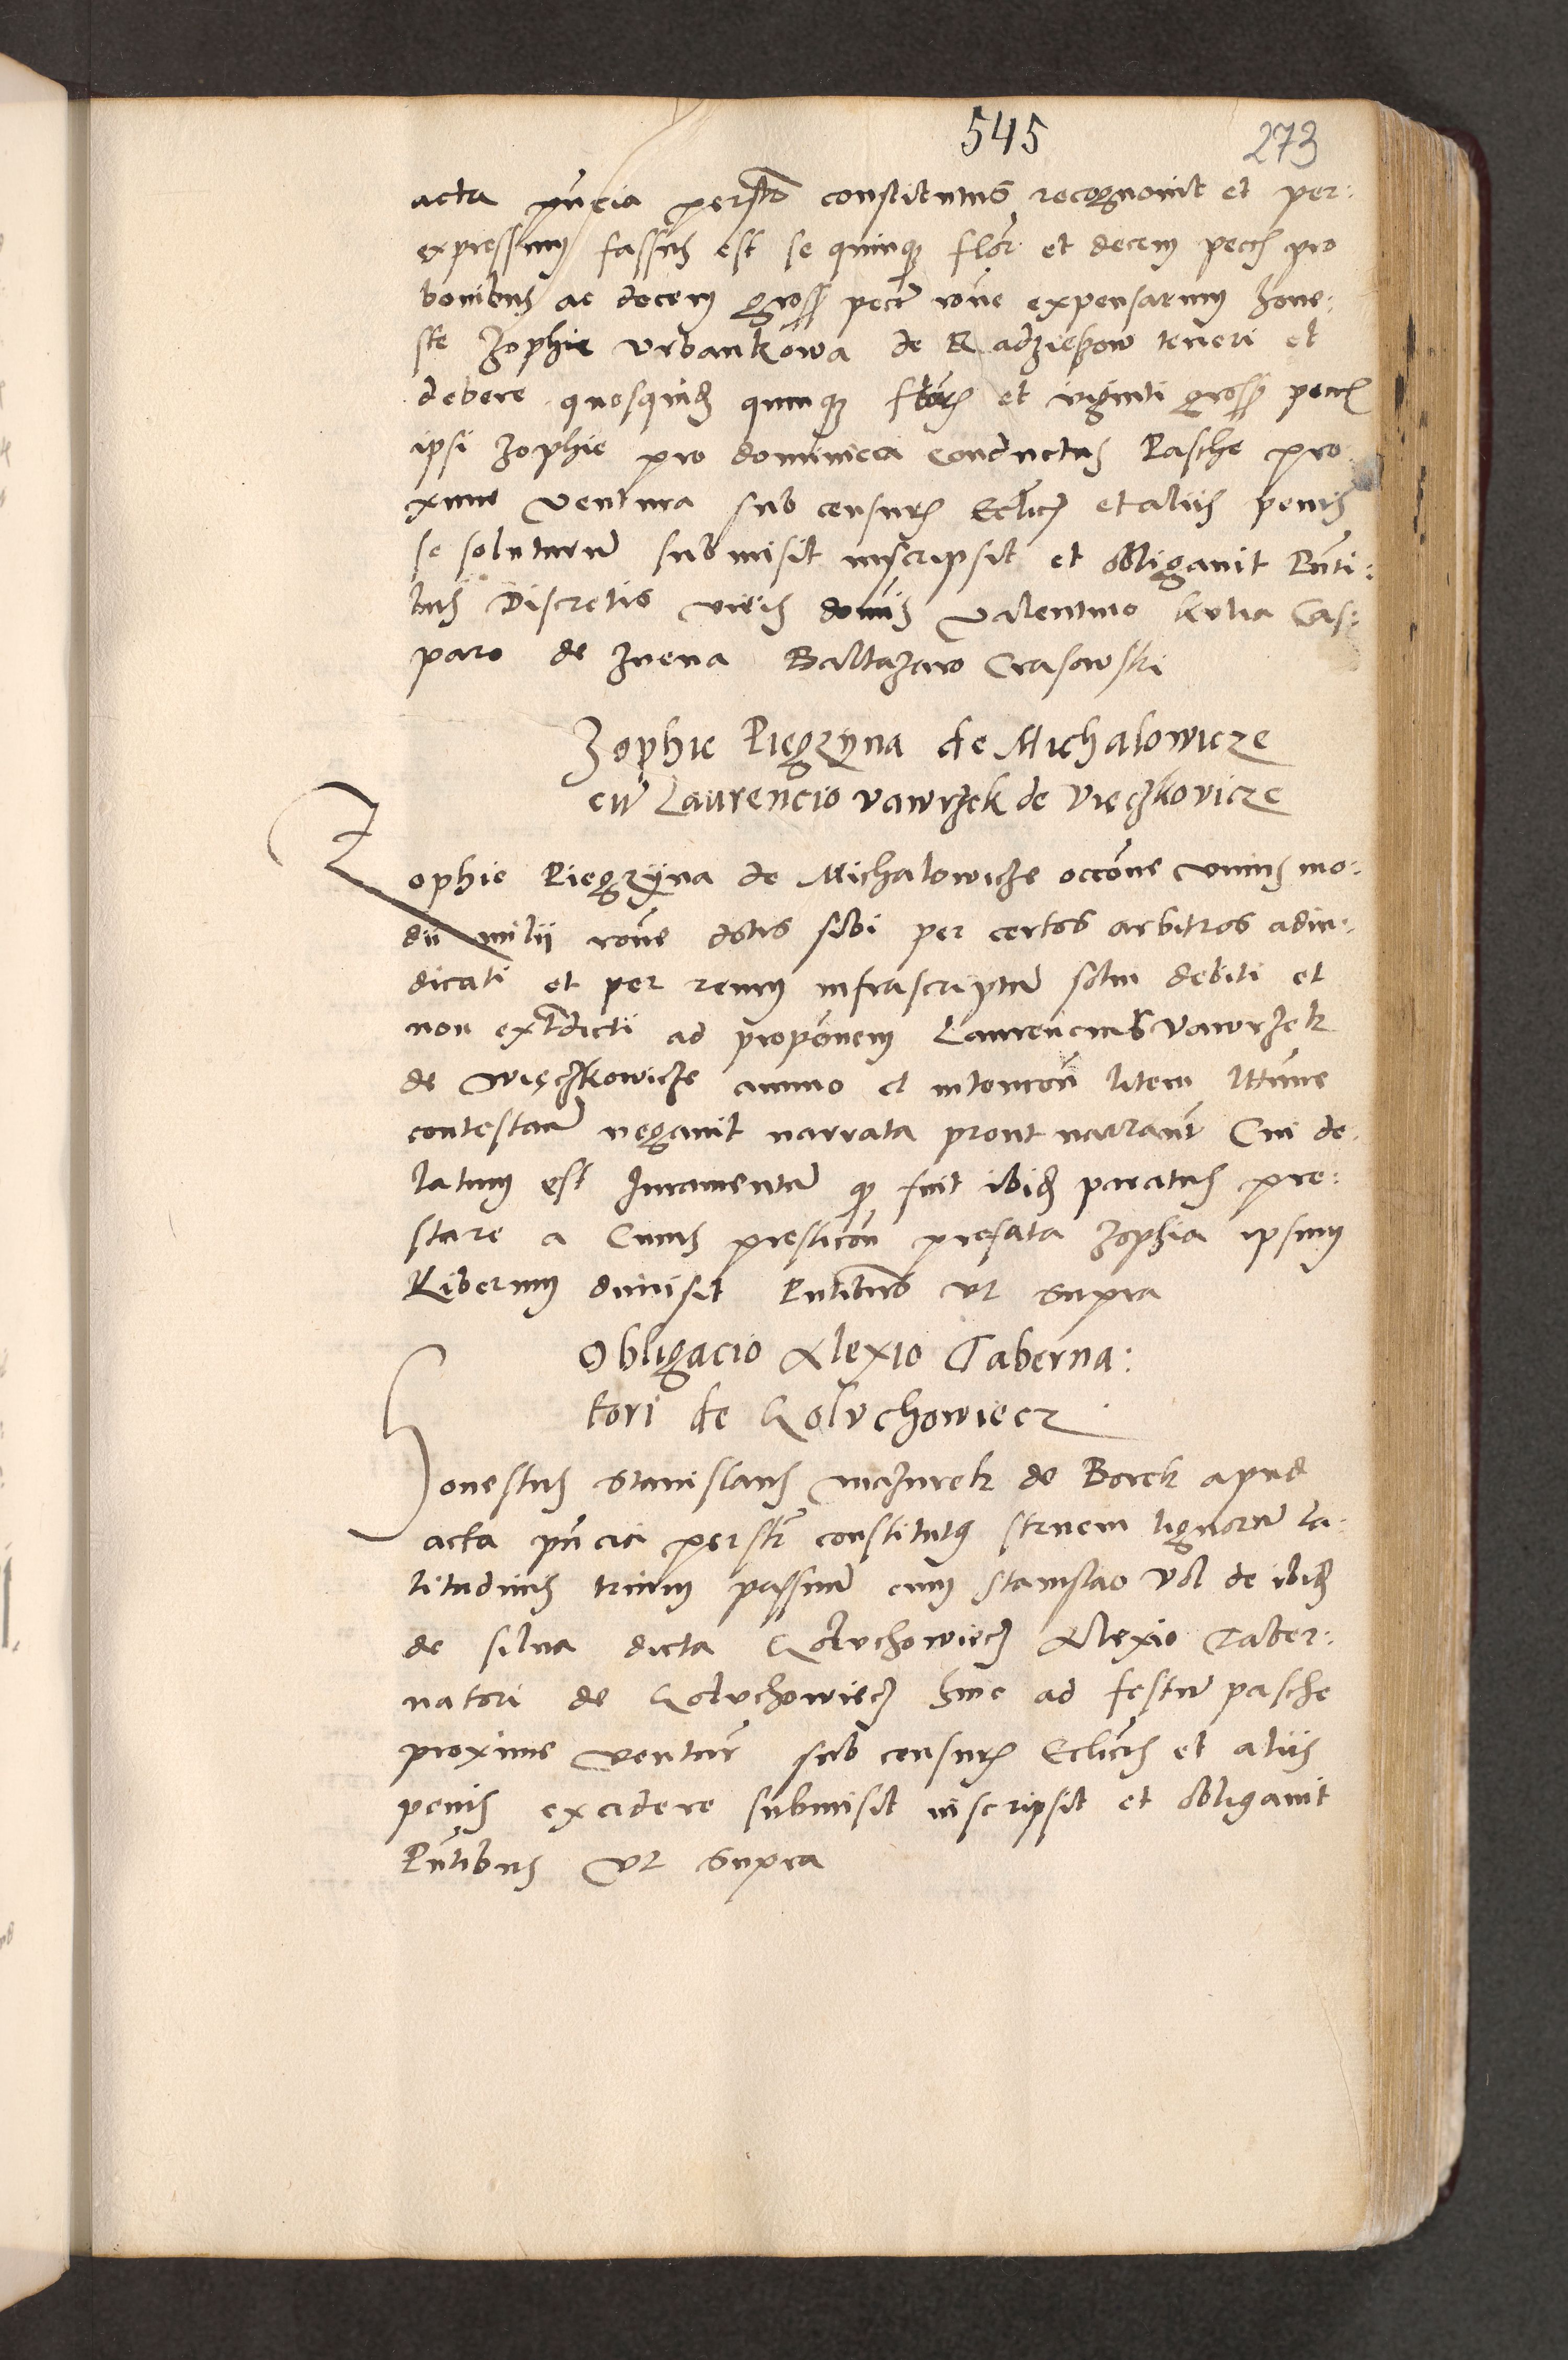 545 273
acta pncia personlr constitutus recognovit et per:
expressum fassus est se quinque flor et decem pecr pro
bovibus ac decem gross pecr rone expensarum hone:
ste Zophie Urbankowa de Radzieyow teneri et
debere quosquidem quinque flor et viginti gross pecr
ipsi Zophie pro dominica conductus Pasche pro
xime ventura sub censuris Ecclicis et aliis penis
se soluturum submisit inscripsit et obligavit Pnti:
bus Discretis viris dnis Valentino Kulia Cas:
paro de Inena Baltazaro Crasowski
Zophie Piegrzyna de Michalowicze
cum Laurencio Vawrzek de Vięczkovicze
Zophie Piegrzyna de Michalowicze occone unius mo:
dii milii rone dotis sibi per certos arbitros adiu:
dicati et per reum infrascriptum solui debiti et
non extradicti ad proponem Laurencius Vawrzek
de Więczkowicze animo et intencon litem
contestan negavit narrata prout narrant Cui de
latum est Iuramentum qd fuit ibidem paratus pre:
stare a Cuius presticon prefata Zophia ipsum
Liberum dimisit Pntibus ut supra
Obligacio Alexio Taberna:
tori de Goluchowiecz
Honestus Stanislaus mazurek de Borek apud
acta pncia personlr constitutus struem lignorum la
titudinis trium passuum cum Stanislao Vol de ibidem
de silva dicta Goluchowiecz Alexio Taber:
natori de Goluchowiecz hinc ad festum pasche
proxime ventur sub censuris Ecclicis et aliis
penis excidere submisit inscripsit et obligavit
Pntibus ut supra